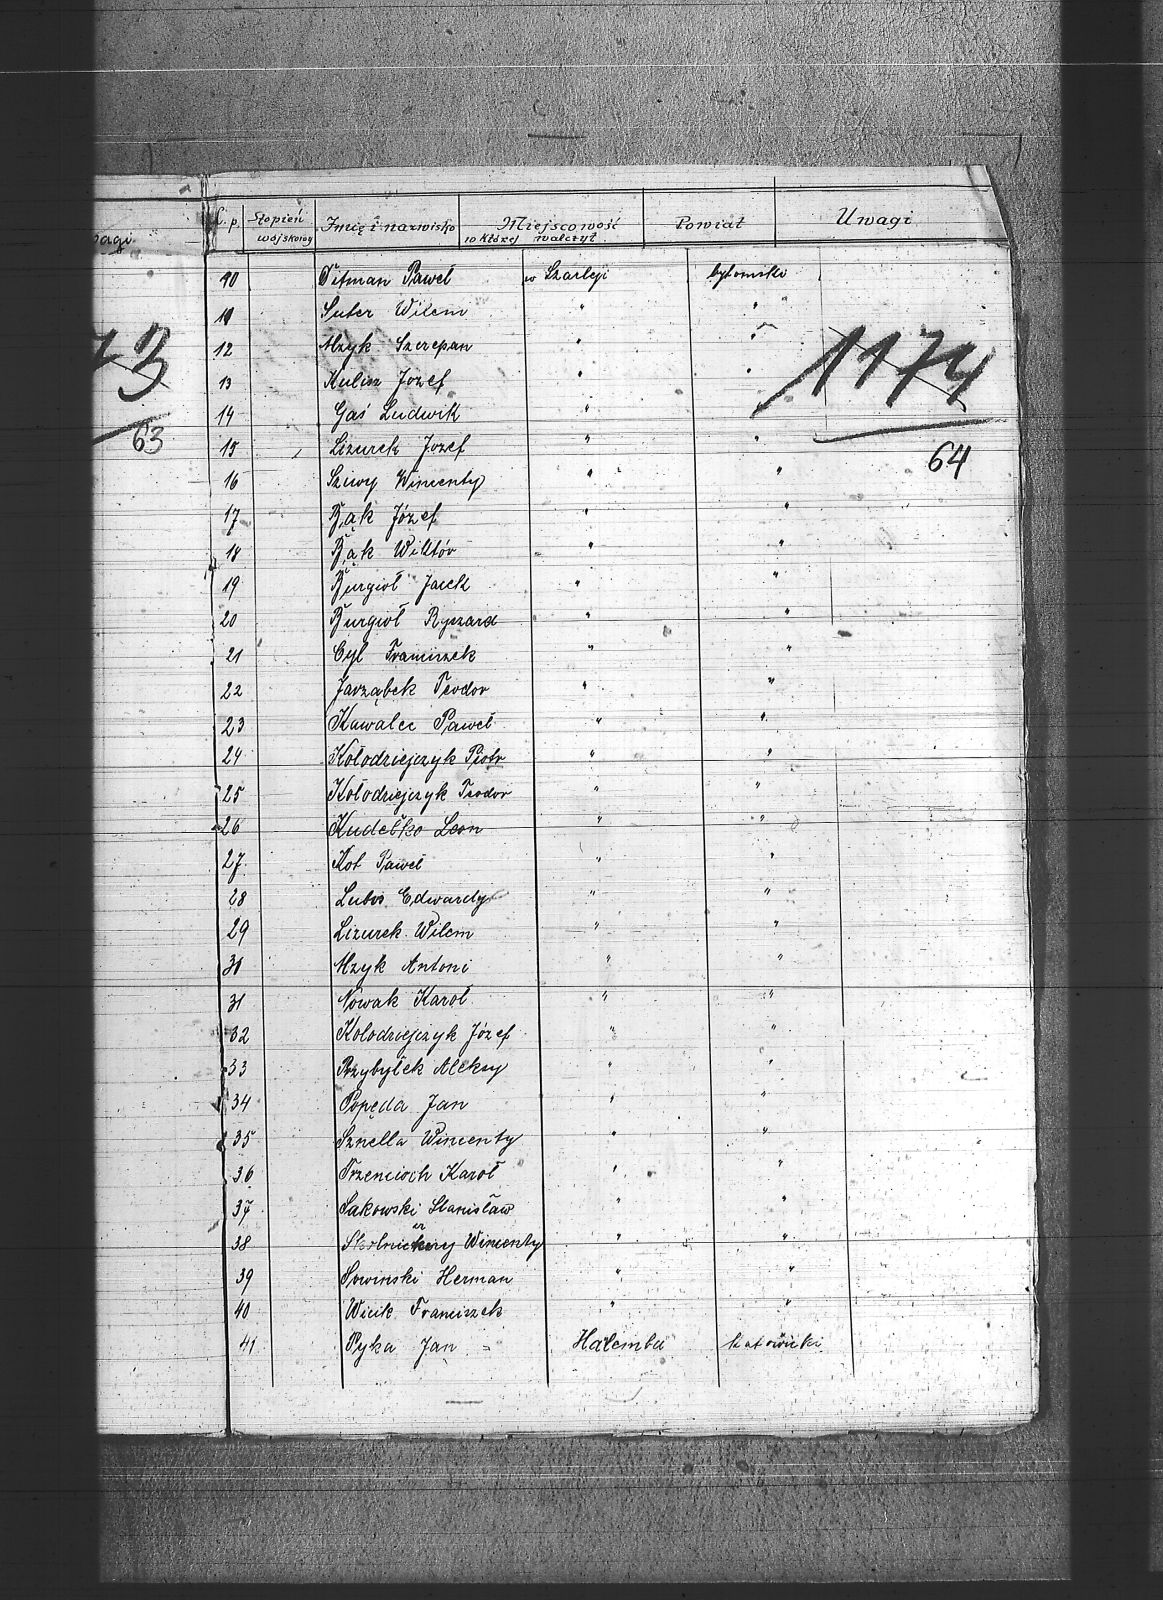 L. p. Stopień wojskowy Imię i nazwisko Miejscowość w której walczył Powiat Uwagi
10 Pitman Paweł w Szarleji bytomski
11 Suter Wilem " "
12 Mzyk Szczepan " "
13 Kulisz Józef " "
1174
14 Gaś Ludwik " "
15 Lizurek Jozef " "
64
63
16 Wincenty " "
17 Bąk Józef " "
18 Bąk Wiktór " "
19 Burgioł Jacek " "
20 Burgioł Ryszard " "
21 Cyl Franciszek " "
22 Jarząbek Teodor " "
23 Kawalec Paweł " "
24 Kołodziejczyk Piotr " "
25 Kołodziejczyk Teodor " "
26 Kudełko Leon " "
27 Kot Paweł " "
28 Lubos Edwardy " "
29 Lizurek Wilem " "
30 Mzyk Antoni " "
31 Nowak Karol " "
32 Kolodziejczyk Józef " "
33 Przybyłek Aleksy " "
34 Popęda Jan " "
35 Sznella Wincenty " "
36 Trzencioch Karol " "
37 Sakowski Stanisław " "
38 Wincenty " "
39 Sowinski Herman " "
40 Wicik Franciszek " "
41 Pyka Jan Halemba katowicki